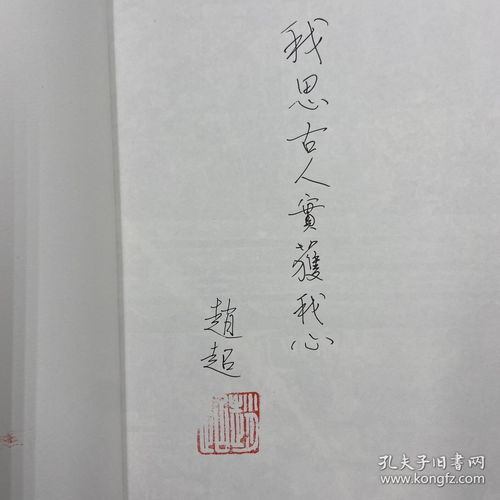 我思古人實獲我心
趙超
孔夫子旧书网
www.kongfz.com